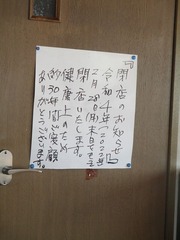 閉店のお知らせ
令和4年(2022年)
2月28日(月)末日をもって
閉店いたします。
健康上のため
約30年間ご愛顧
ありがとうございます。